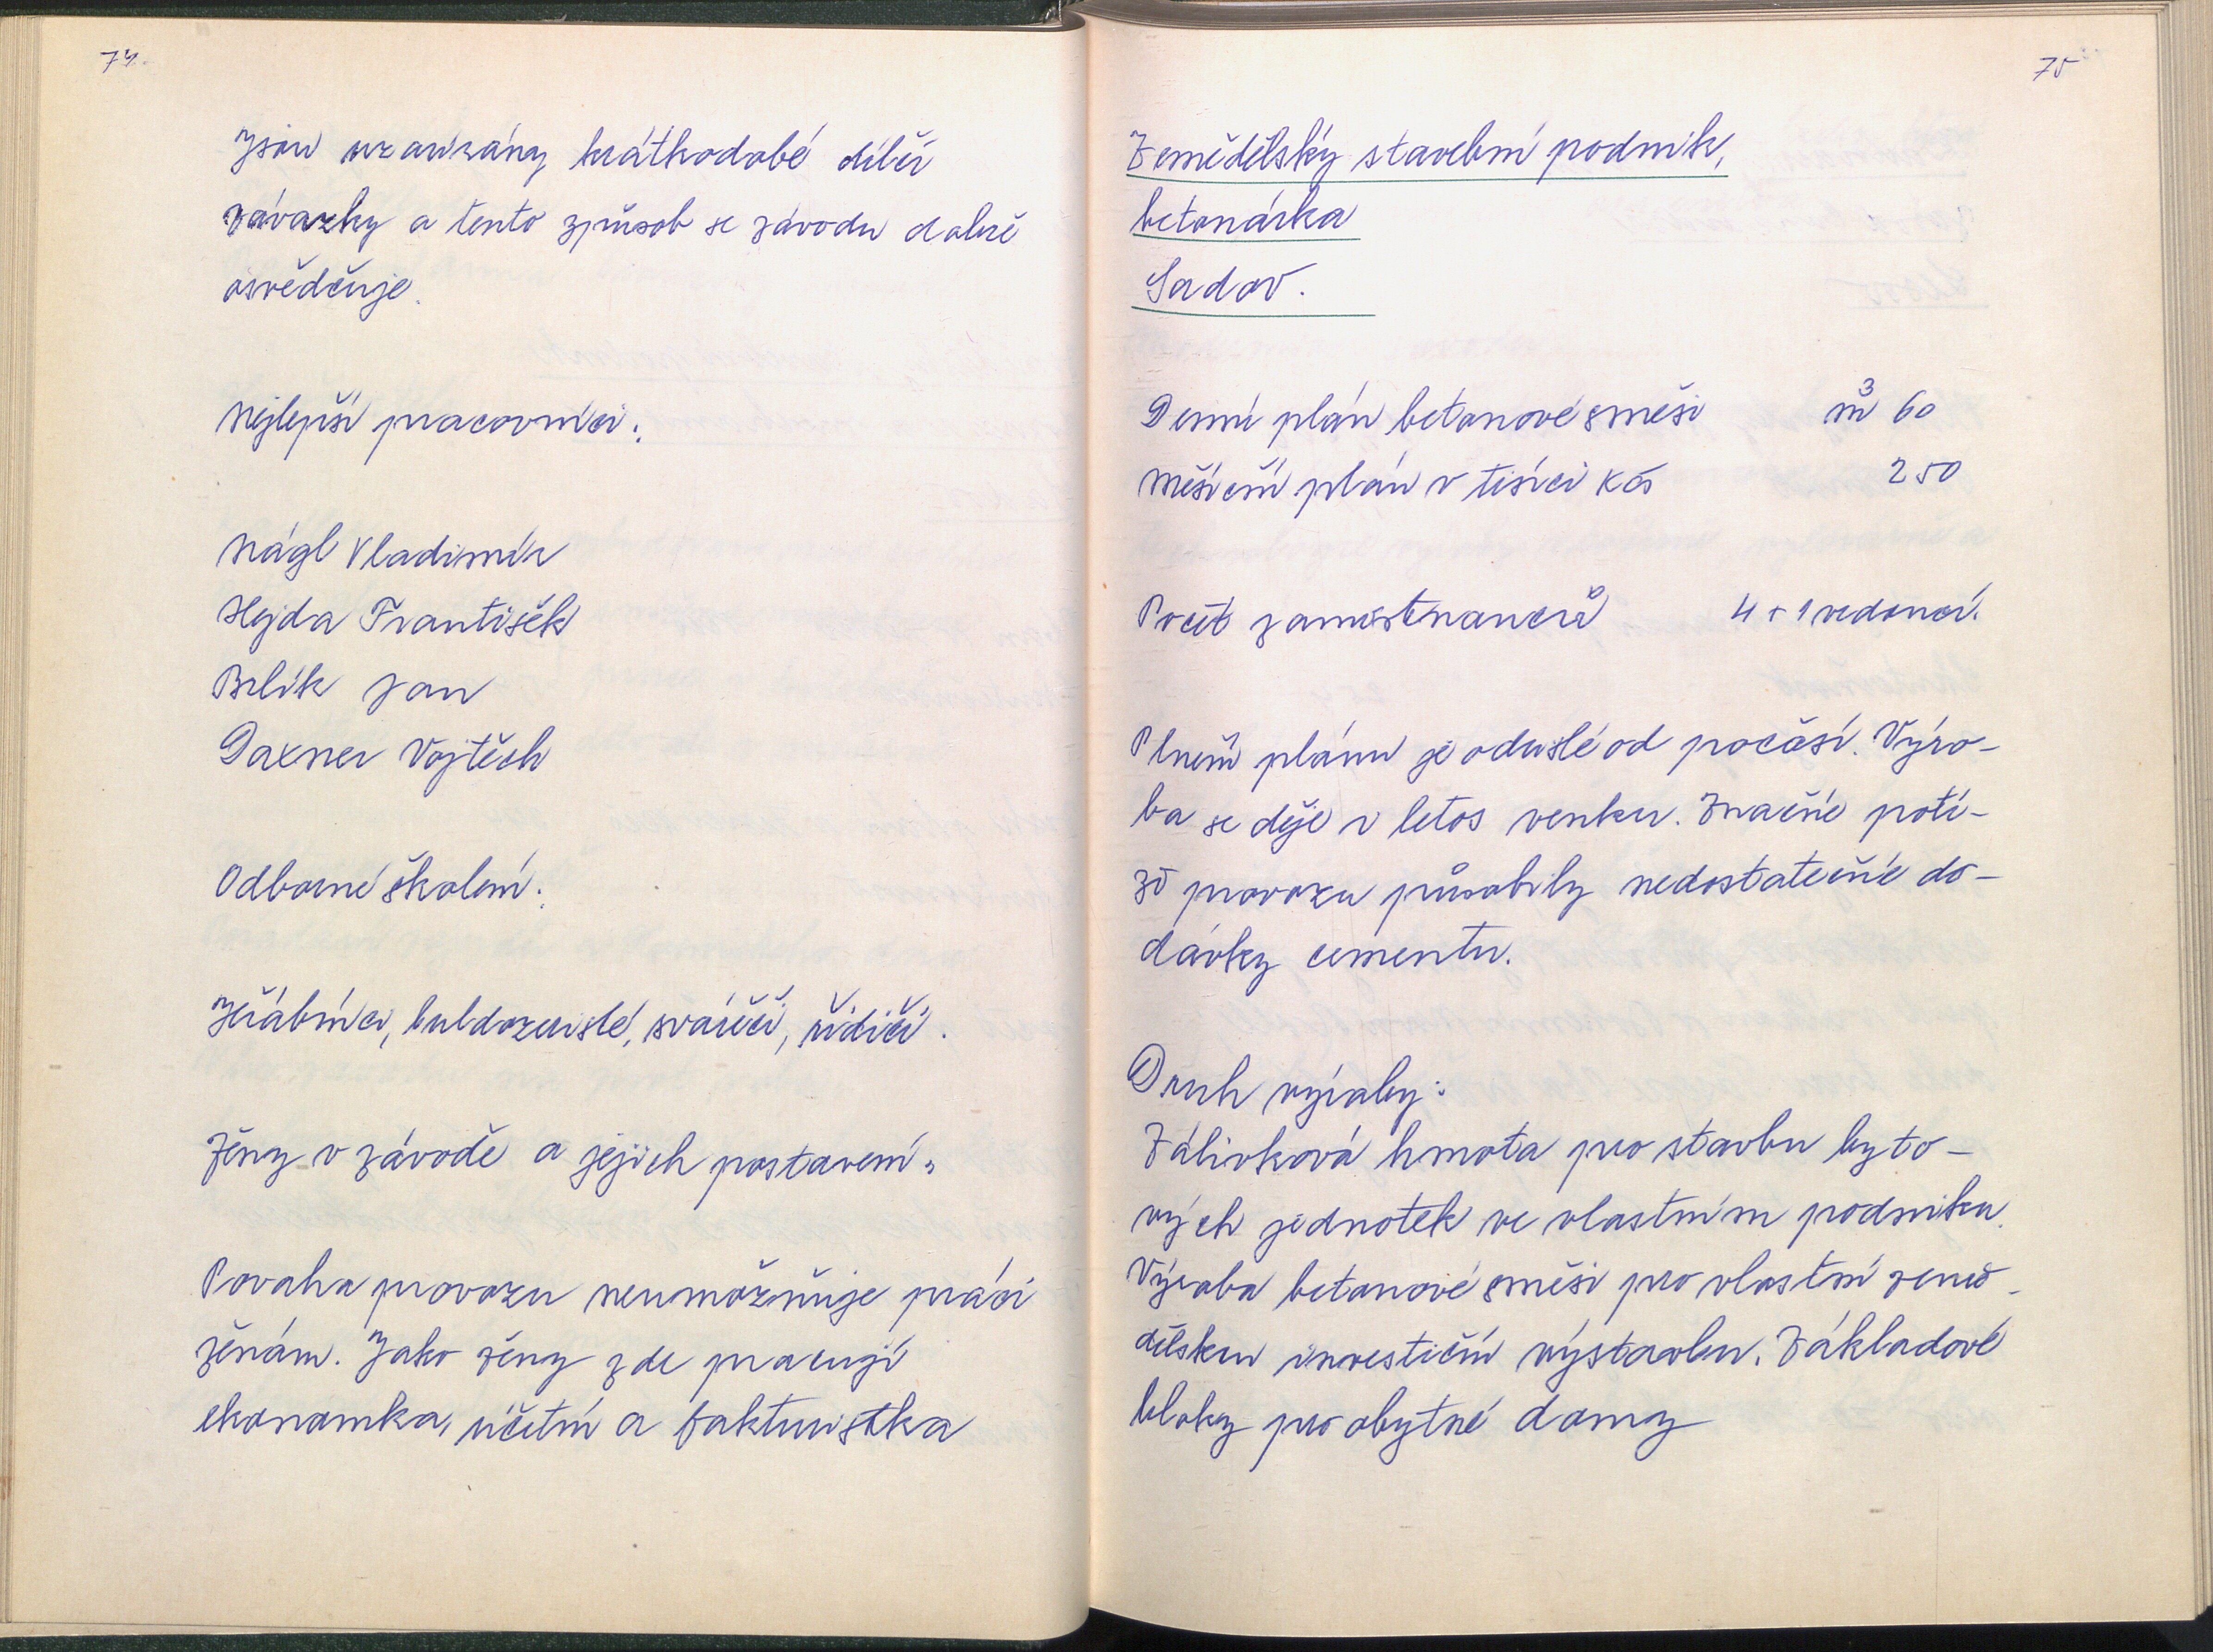 74.
Jsou uzavírány krátkodobé dílčí
závazky a tento způsob se závodu dobře
osvědčuje.
Nejlepší pracovníci:
Nágl Vladimír
Hejda František
Brlík Jan
Daxner Vojtěch
Odborné školení:
Jeřábníci, buldozeristé, svářeči, řidiči.
Ženy v závodě a jejich postavení:
Povaha provozu neumožňuje práci
ženám. Jako ženy zde pracují
ekonomka, účetní a fakturistka
75
Zemědělský stavební podnik,
betonárka
Sadov.
Denní plán betonové směsi m³ 60
Měsíční plán v tisíci Kčs 250
Počet zaměstnanců 4 + 1 vedoucí.
Plnění plánu je odvislé od počasí. Výro-
ba se děje v letos venku. Značné potí-
že provozu působily nedostatečné do-
dávky cementu.
Druh výroby:
Zálivková hmota pro stavbu byto-
vých jednotek ve vlastním podniku.
Výroba betonové směsi pro vlastní země-
dělskou investiční výstavbu. Základové
bloky pro obytné domy